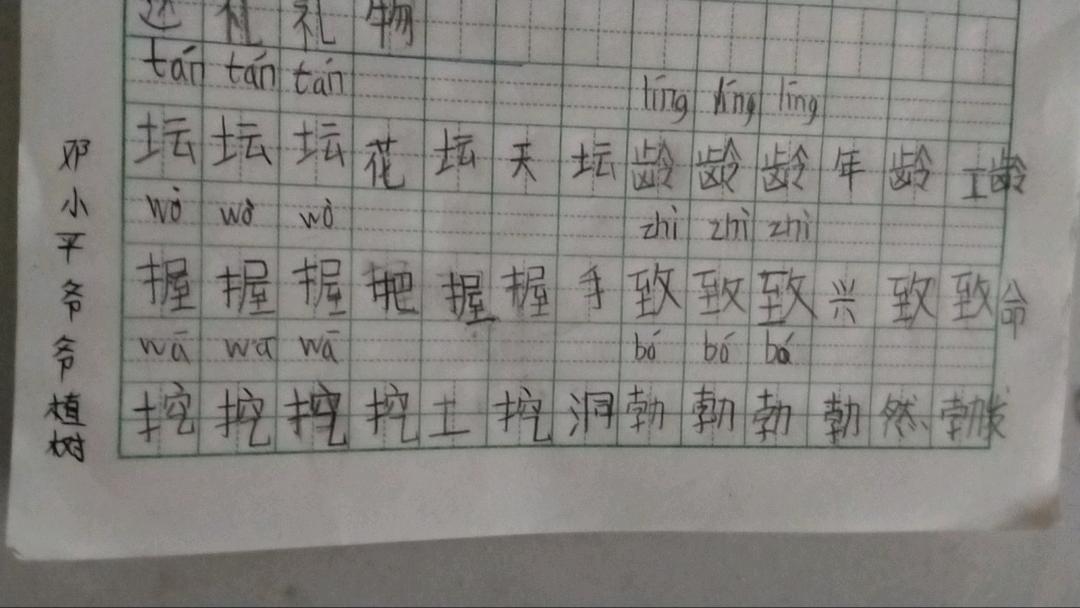 还 礼 礼 物
tán tán tán líng líng líng
坛 坛 坛 花 坛 天 坛 龄 龄 龄 年 龄 工龄
wò wò wò zhì zhì zhì
握 握 握 把 握 握 手 致 致 致 兴 致 致命
wā wā wā bó bó bó
挖 挖 挖 挖 土 挖 洞 勃 勃 勃 勃 然 勃发
邓小平爷爷植树